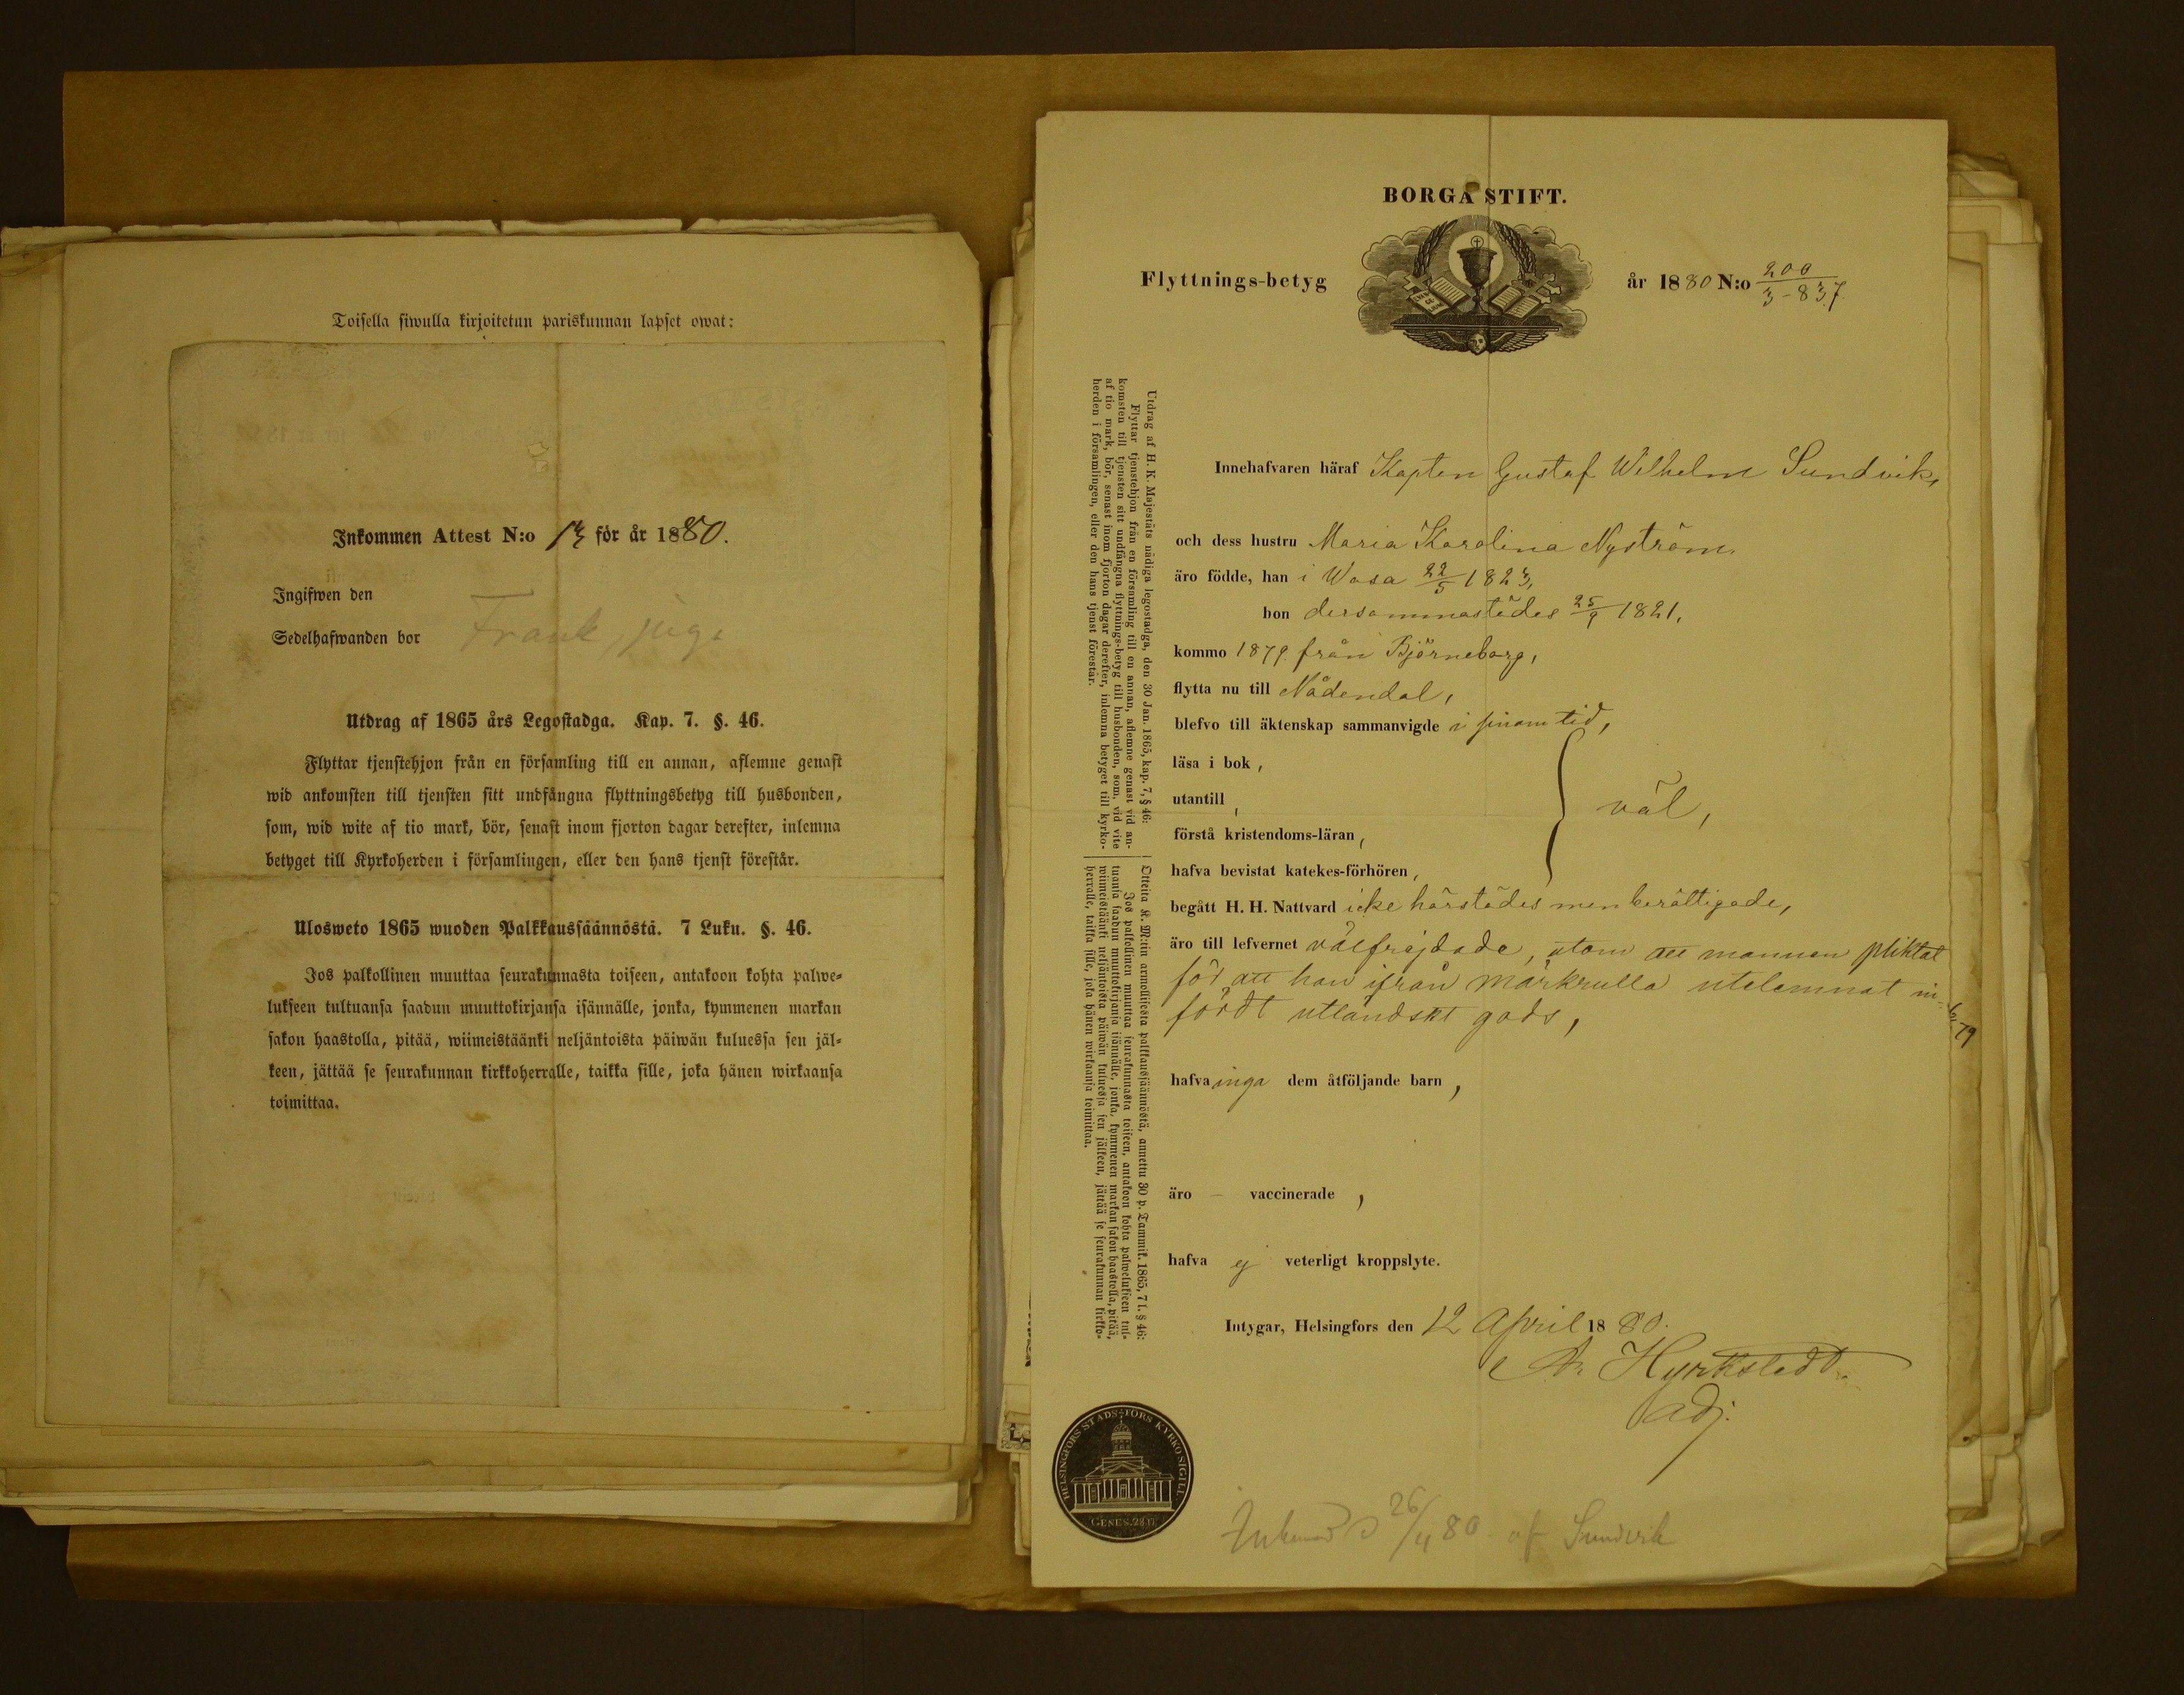 Toisella siwulla kirjoitetun pariskunnan lapset owat:
Inkommen Attest N:o 13 för år 1880.
Ingifwen den
Sedelhafwanden bor Frank, piga
Utdrag af 1865 års Legostadga. Kap. 7. §. 46.
Flyttar tjenstehjon från en församling till en annan, aflemne genast
wid ankomsten till tjensten sitt undfångna flyttningsbetyg till husbonden,
som, wid wite af tio mark, bör, senast inom fjorton dagar derefter, inlemna
betyget till Kyrkoherden i församlingen, eller den hans tjenst förestår.
Ulosweto 1865 wuoden Palkkaussäännöstä. 7 Luku. §. 46.
Jos palkollinen muuttaa seurakunnasta toiseen, antakoon kohta palwe-
lukseen tultuansa saadun muuttokirjansa isännälle, jonka, kymmenen markan
sakon haastolla, pitää, wiimeistäänki neljäntoista päiwän kuluessa sen jäl-
keen, jättää se seurakunnan kirkkoherralle, taikka sille, joka hänen wirkaansa
toimittaa.
BORGÅ STIFT.
Flyttnings-betyg år 1880 N:o 200/3-837.
Utdrag af H. K. Majestäts nådiga legostadga, den 30 Jan. 1865, kap. 7, § 46:
Flyttar tjenstehjon från en församling till en annan, aflemne genast vid an-
komsten till tjensten sitt undfångna flyttnings-betyg till husbonden, som, vid vite
af tio mark, bör, senast inom fjorton dagar derefter, inlemna betyget till kyrko-
herden i församlingen, eller den hans tjenst förestår.
Otteita K. M:tin armollisesta palkkaussäännöstä, annettu 30 p. Tammik. 1865, 7 l. § 46:
Jos palkollinen muuttaa seurakunnasta toiseen, antakoon kohta palwelukseen tul-
tuansa saadun muuttokirjansa isännälle, jonka, kymmenen markan sakon haastolla, pitää,
wiimeistäänki neljäntoista päiwän kuluessa sen jälkeen, jättää se seurakunnan kirkko-
herralle, taikka sille, joka hänen wirkaansa toimittaa.
Innehafvaren häraf Kapten Gustaf Wilhelm Sundvik,
och dess hustru Maria Karolina Nyström,
äro födde, han i Wasa 22/5 1823,
hon dersammastädes 25/9 1821,
kommo 1879 från Björneborg,
flytta nu till Nådendal,
blefvo till äktenskap sammanvigde i sinom tid,
läsa i bok,
utantill,
väl,
förstå kristendoms-läran,
hafva bevistat katekes-förhören,
begått H. H. Nattvard icke härstädes men berättigade,
äro till lefvernet välfrejdade, utom att mannen pliktat
för att han ifrån märkrulla utelemnat in-
fördt utländskt gods,
79
hafva inga dem åtföljande barn,
äro – vaccinerade,
hafva ej veterligt kroppslyte.
Intygar, Helsingfors den 12 April 1880.
Hyrkstedt
adj.
HELSINGFORS STADS-FÖRS KYRKO SIGILL
GENES. 28.17
26/4 80. af Sundvik